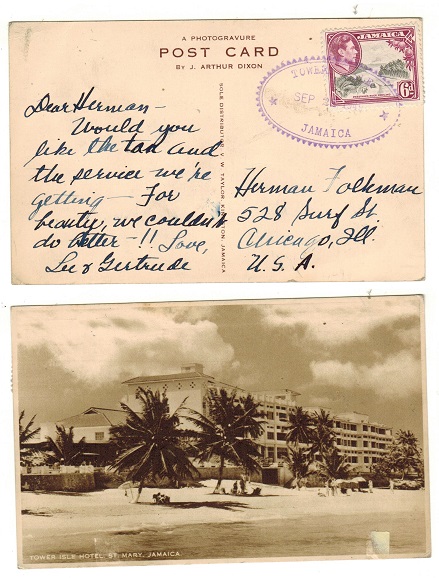 A PHOTOGRAVURE
POST CARD
BY J. ARTHUR DIXON
JAMAICA
6d
TOWER
SEP
JAMAICA
Dear Herman -
Would you
like the tan and
the service we're
getting - For
beauty, we couldn't
do better - !! Love,
Lee & Gertrude
SOLE DISTRIBUTOR V. W. TAYLOR, KINGSTON, JAMAICA
Herman Folkman
528 Surf St.
Chicago, Ill.
U. S. A.
TOWER ISLE HOTEL, ST. MARY, JAMAICA